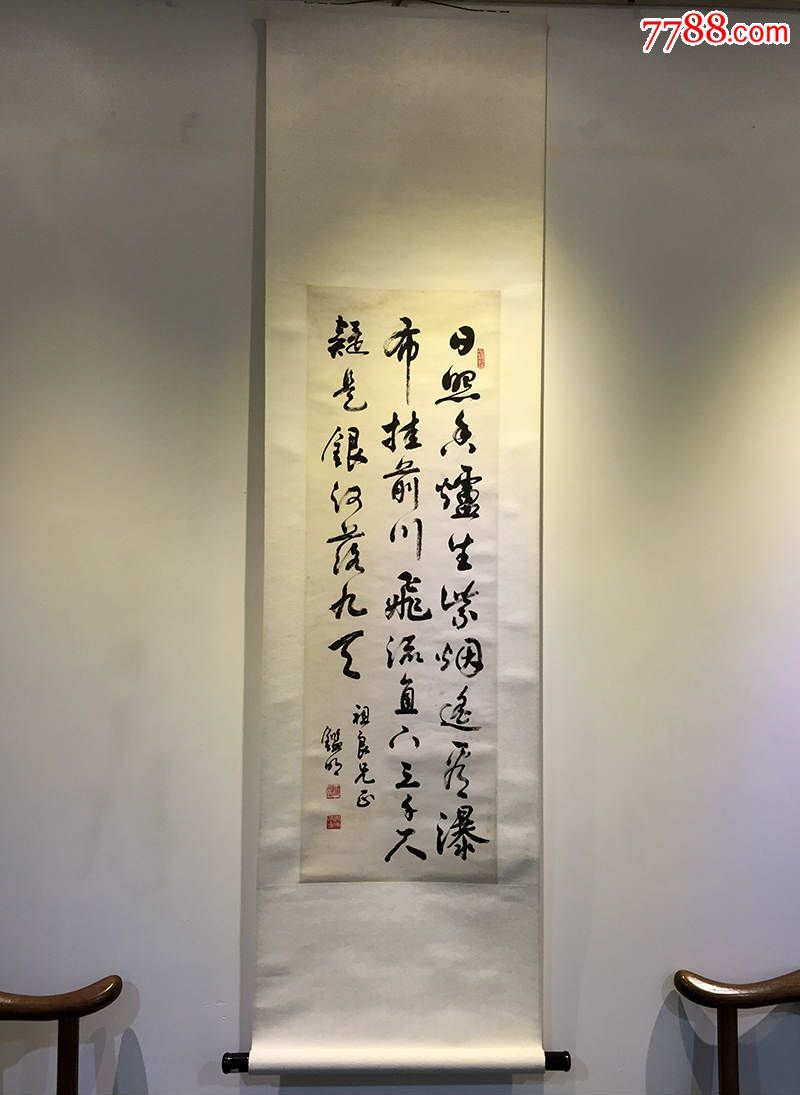 7788.com
日照香爐生紫烟遙看瀑
布挂前川飛流直下三千尺
疑是銀河落九天
祖良兄正
鑑明